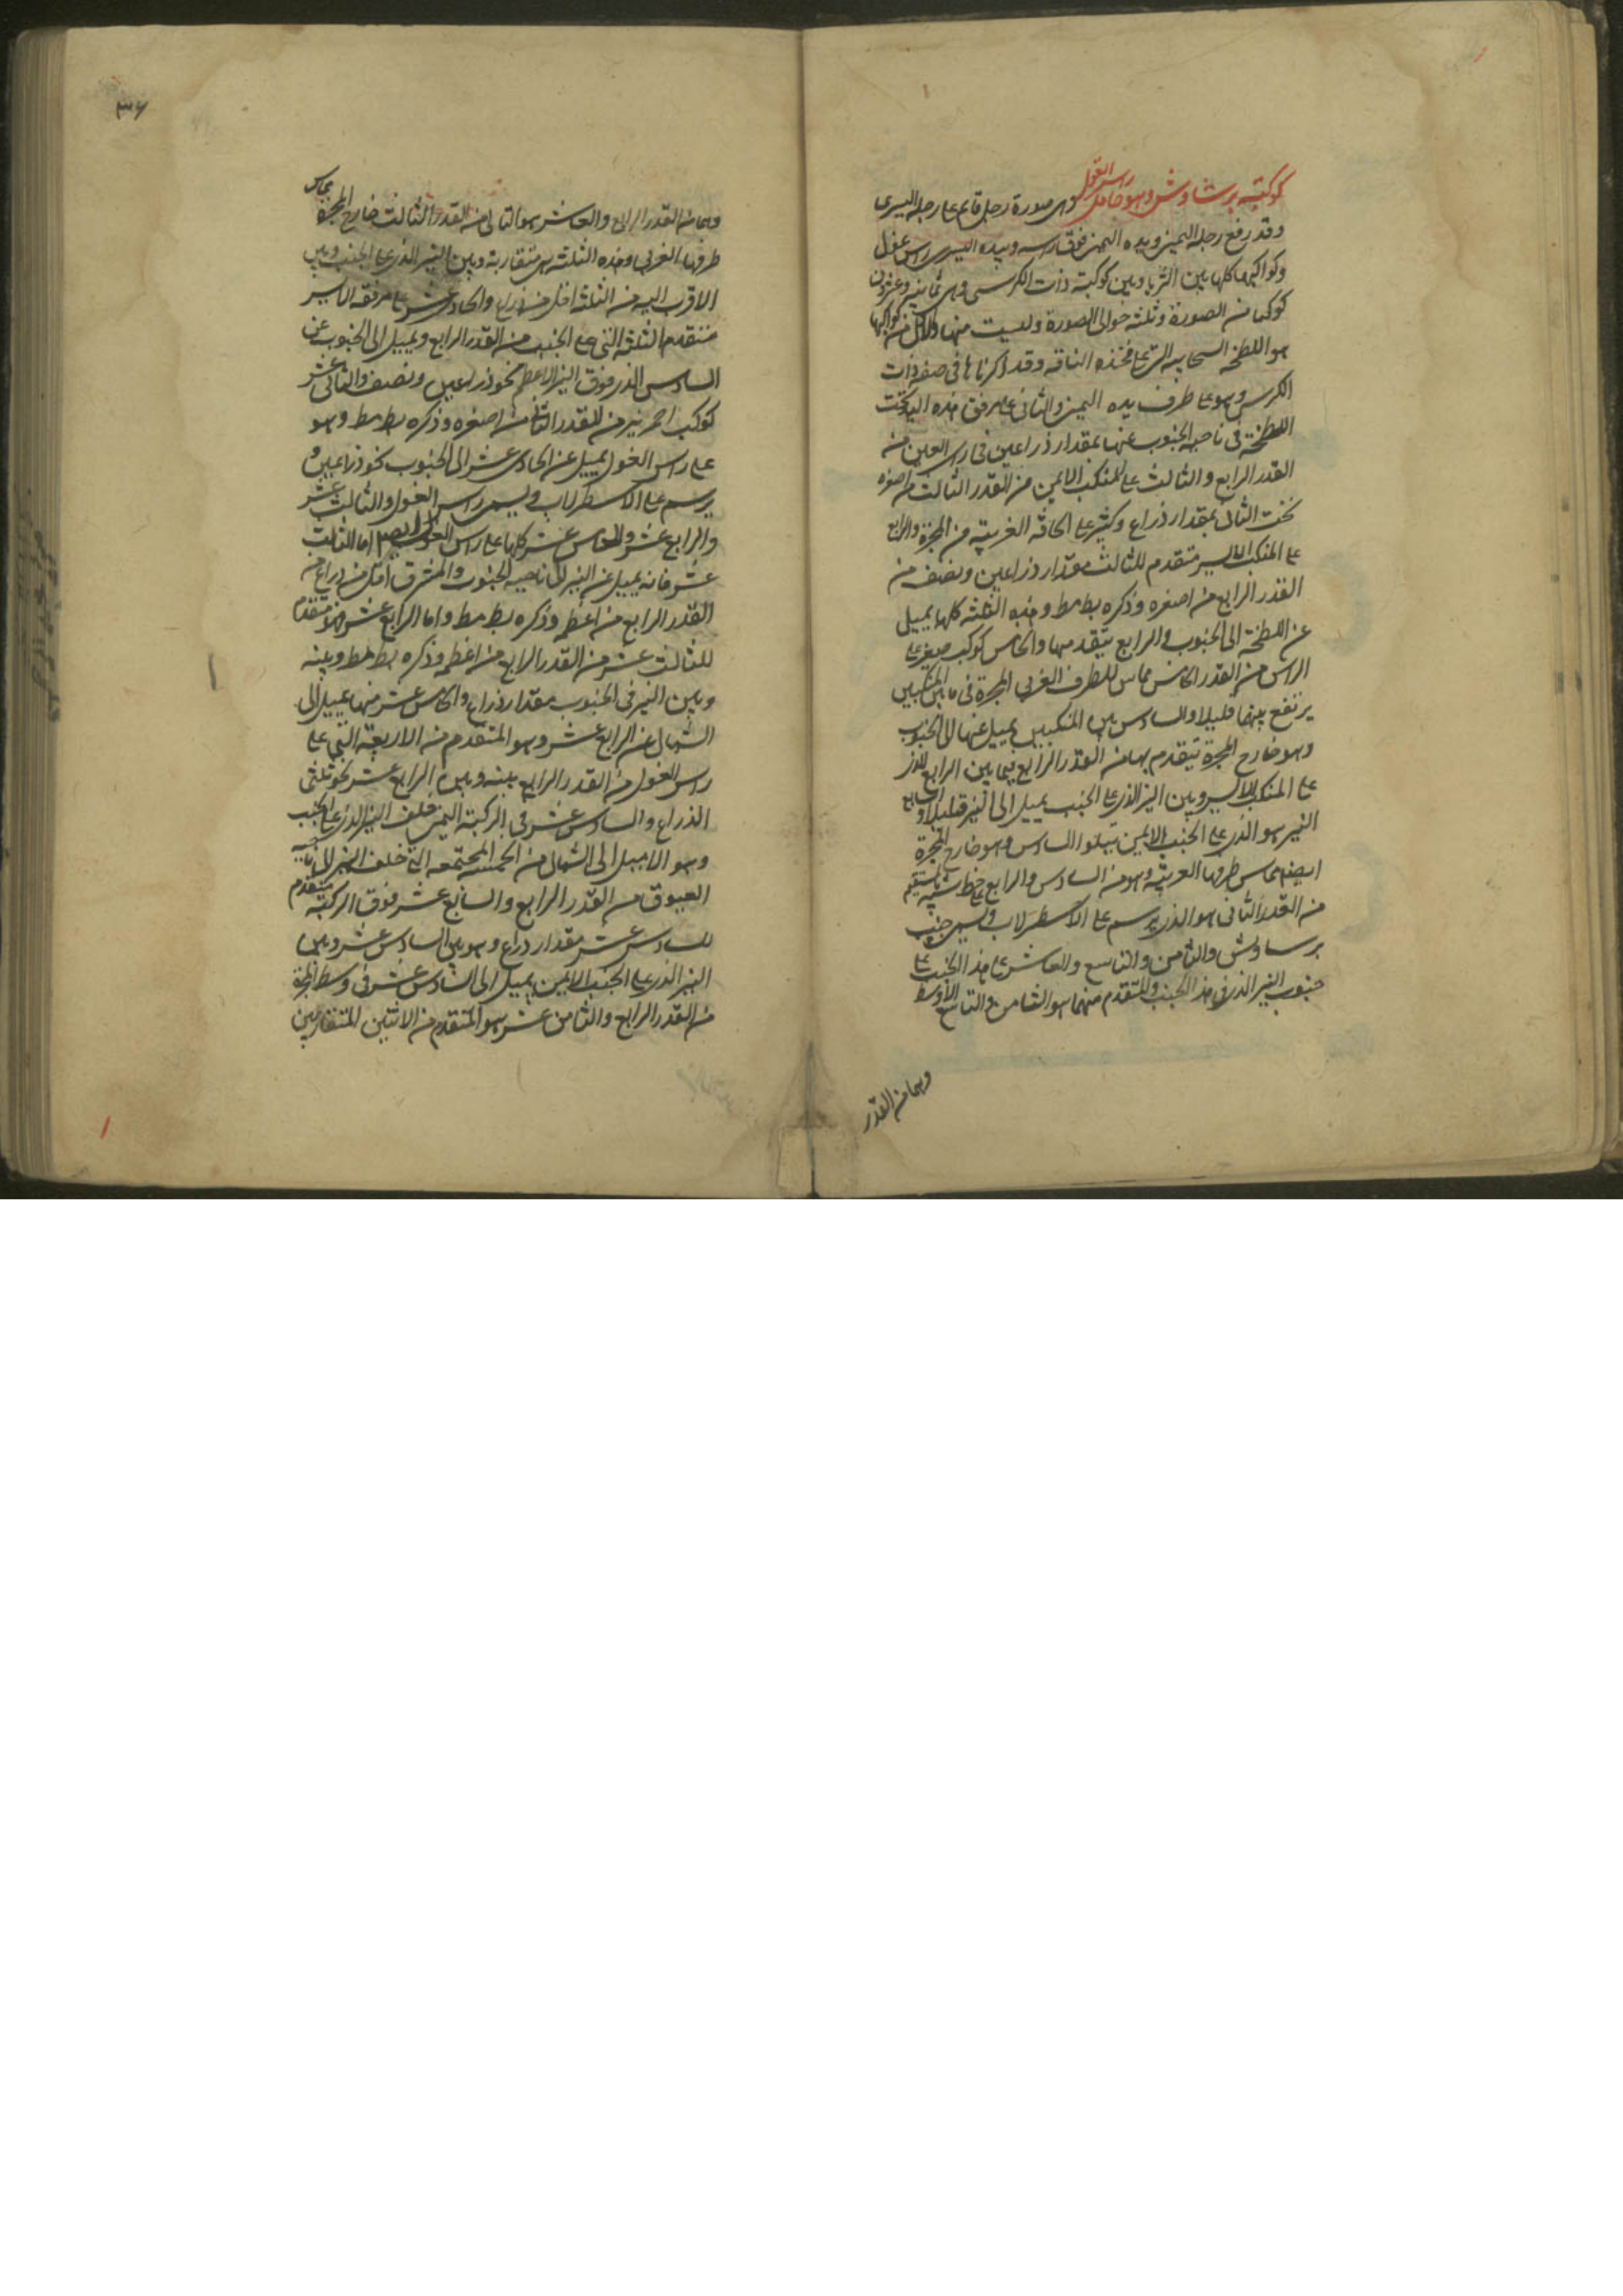 كوكبة برشاوش وهو حامل راس الغول وهى صورة رجل قايم على رجله اليسرى
وقد رفع رجله اليمنى ويده اليمنى فوق راسه وبيده اليسرى راس غول
وكواكبها كلها بين الثريا وبين كوكبة ذات الكرسى وهى ثمانية وعشرون
كوكبا من الصورة وثلثة حوالى الصورة وليست منها والاول من كواكبها
هو اللطخة السحابية التى على فخذه الناقة وقد ذكرناها فى صفة ذات
الكرسى وهو على طرف يده اليمنى والثانى على مرفق هذه اليد تحت
اللطخة فى ناحية الجنوب عنها بمقدار ذراعين فى راى العين من
القدر الرابع والثالث على المنكب الايمن من القدر الثالث من اصغره
تحت الثانى بمقدار ذراع وكثير على الحافة الغربية من المجرة والرابع
على المنكب الايسر متقدم للثالث مقدار ذراعين ونصف من
القدر الرابع من اصغره وذكره بطلميوس وهذه الثلثة كلها يميل
عن اللطخة الى الجنوب والرابع يتقدمها والخامس كوكب صغير على
الراس من القدر الخامس مماس للطرف الغربى المجرة فى ما بين المنكبين
يرتفع بينها قليلا والسادس بين المنكبين يميل عنها الى الجنوب
وهو خارج المجرة يتقدم بها من القدر الرابع فيما بين الرابع الذى
على المنكب الايسر وبين النير الذى على الجنب يميل الى النير قليلا والسابع
النير هو الذى على الجنب الايمن يتلو السادس وهو خارج المجرة
ايضا مماس طرفها الغربية وهو من السادس والرابع على خط شبيه بالمستقيم
من القدر الثانى هو الذى يرسم على الاسطرلاب ويسمى جنب
برساوش والثامن والتاسع والعاشر على هذا الجنب على
جنوب النير الذى فى هذا الجنب والمتقدم منهما هو الثامن والتاسع الاوسط
وهما من القدر
٣٦
وهما من القدر الرابع والعاشر هو التالى من القدر الثالث خارج المجرة يماس
طرفها الغربى وهذه الثلثة هى متقاربة وبين النير الذى على الجنب وبين
الاقرب اليه من الثلثة اقل من ذراع والحادى عشر على مرفقه الايسر
متقدم الثلثة التى على الجنب من القدر الرابع ويميل الى الجنوب عن
السادس الذى فوق النير الاعظم نحو ذراعين ونصف والثانى عشر
كوكب احمر نير من القدر الثانى من اصغره وذكره بطلميوس وهو
على راس الغول يميل عن الحادى عشر الى الجنوب نحو ذراعين و
يرسم على الاسطرلاب ويسمى راس الغول والثالث عشر
والرابع عشر والخامس عشر كلها على راس الغول ايضا اما الثالث
عشر فانه يميل عن النير الى ناحية الجنوب والمشرق اقل من ذراع من
القدر الرابع من اعظمه وذكره بطلميوس واما الرابع عشر فهو متقدم
للثالث عشر من القدر الرابع من اعظمه وذكره بطلميوس وبينه
وبين النير فى الجنوب مقدار ذراع والخامس عشر منها يميل الى
الشمال عن الرابع عشر وهو المتقدم من الاربعة التى على
راس الغول من القدر الرابع بينه وبين الرابع عشر نحو ثلثى
الذراع والسادس عشر فى الركبة اليمنى خلف النير الذى على الجنب
وهو الاميل الى الشمال من الخمسة المجتمعة التى خلف النير الى ناحية
العيوق من القدر الرابع والسابع عشر فوق الركبة متقدم
للسادس عشر مقدار ذراع وهو بين السادس عشر وبين
النير الذى على الجنب الايمن يميل الى السادس عشر فى وسط المجرة
من القدر الرابع والثامن عشر هو المتقدم من الاثنين المتقاربين